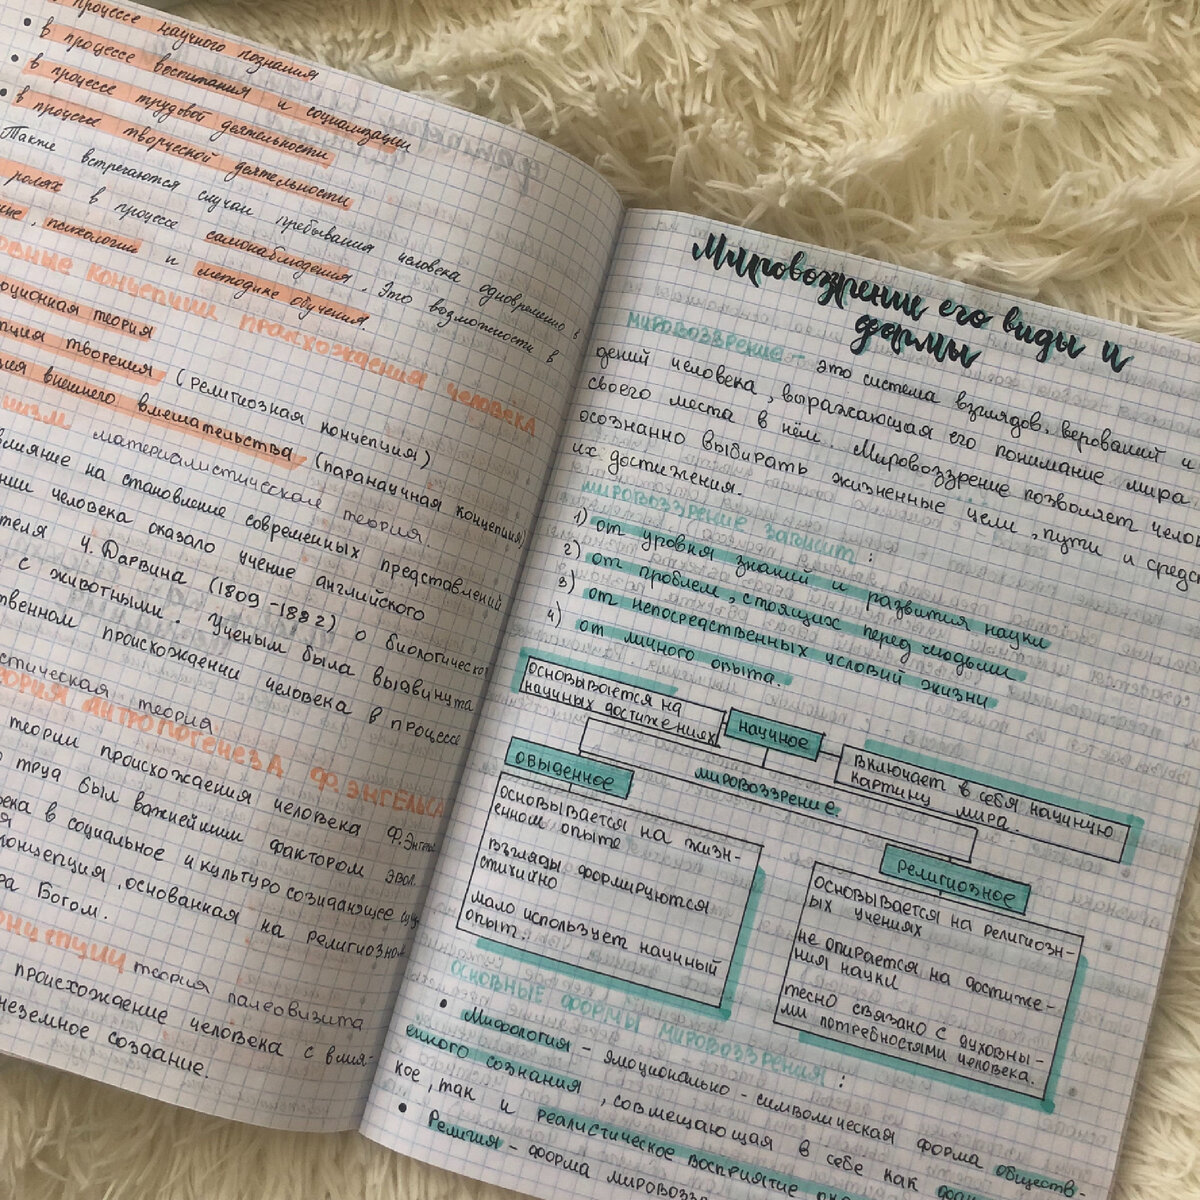 процессе научного познания
• в процессе воспитания и социализации
• в процессе трудовой деятельности
• в процессе творческой деятельности
Также встречаются случаи пребывания человека одновременно в
ролях в процессе самонаблюдения. Это возможности в
психологии и методике обучения.
концепции происхождения человека
теория
творения (религиозная концепция)
внешнего вмешательства (паранаучная концепция)
материалистическая теория
влияние на становление современных представлений
человека оказало учение английского
Ч. Дарвина (1809-1882) о биологическом
с животными. Ученым была выдвинута
происхождении человека в процессе
теория
теория антропогенеза Ф. Энгельса
теории происхождения человека Ф. Энгель
труд был важнейшим фактором эвол.
в социальное и культуро созидающее
концепция, основанная на религиозном
Богом.
теория палеовизита
происхождение человека с влия-
создание.
Мировоззрение его виды и
формы
мировоззрение - это система взглядов, верований и
дений человека, выражающая его понимание мира
своего места в нём. Мировоззрение позволяет чело
осознанно выбирать жизненные цели, пути и средс
их достижения.
мировоззрение зависит:
1) от уровня знаний и развития науки
2) от проблем, стоящих перед людьми
3) от непосредственных условий жизни
4) от личного опыта.
основывается на
научных достижениях
научное
включает в себя научную
картину мира.
мировоззрение.
обыденное
основывается на жизн-
енном опыте
взгляды формируются
стихийно
мало использует научный
опыт.
религиозное
основывается на религиозн-
ых учениях
не опирается на достиже-
ния науки
тесно связано с духовны-
ми потребностями человека.
основные формы мировоззрения:
• Мифология - эмоционально-символическая форма обществ-
енного сознания, совмещающая в себе как
кое, так и реалистическое восприятие
• Религия - форма мировозз